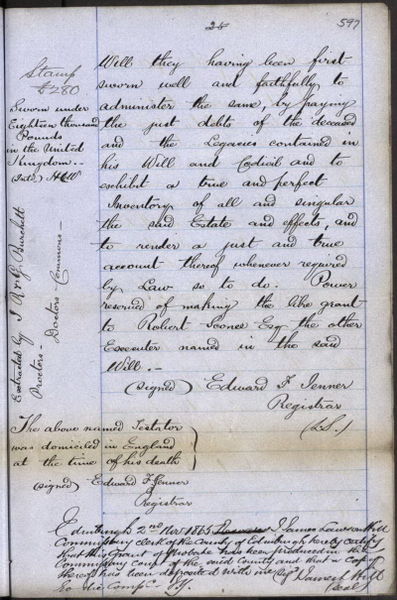 25
597
Stamp
£280
Sworn under
Eighteen thousand
Pounds
in the United
Kingdom.-
Extracted by J. R & G. Burchett
Proctors Doctors Commons -
Will they having been first
sworn well and faithfully to
administer the same, by paying
the just debts of the deceased
and the Legacies contained in
his Will and Codicil and to
exhibit a true and perfect
Inventory of all and singular
the said Estate and effects, and
to render a just and true
account thereof whenever required
by Law so to do. Power
reserved of making the like grant
to Robert Scones Esq the other
Executor named in the said
Will.-
(signed) Edward F. Jenner
Registrar
(L.S.)
The above named Testator
was domiciled in England
at the time of his death
(signed) Edward F. Jenner
Registrar
Edinburgh 2nd Nov 1865 I James Lawson Hill
Commissary clerk of the County of Edinburgh hereby certify
that this Grant of Probate has been produced in the
Commissary Court of the said County and that a Copy
thereof has been deposited with me James L Hill